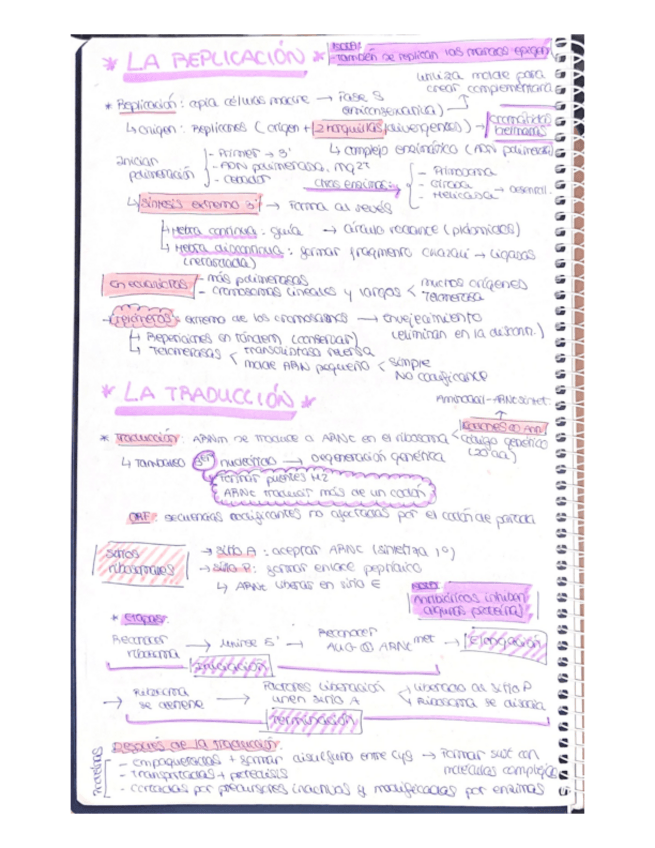 * LA REPLICACIÓN * NOTA:
- También se replican las marcas epigen
utiliza molde para
crear complementaria
* Replicación: copia células madre → Fase S
semiconservativa)
↳ Origen: Replicones (origen + 2 horquillas divergentes) → cromátidas
hermanas
↳ complejo enzimático (ADN polimerasa)
Iniciar
polimeración
- Primer → 3'
- ADN polimerasa, Mg2+
- Cebador
Otras enzimas
- Primosoma
- Girasa
- Helicasa → desenrol.
↳ Síntesis extremo 3' → Forma al revés
↳ Hebra continua: guía → círculo rodante (plásmidos)
↳ Hebra discontinua: formar fragmento Okazaki → Ligasas
(retardada)
En eucariotas
- más polimerasas
- cromosomas lineales y largos < muchos orígenes
Telomerasa
- Telómeros: extremo de los cromosomas → envejecimiento
(eliminan en la descont.)
↳ Repeticiones en tándem (conservar)
↳ Telomerasas < transcriptasa reversa
molde ARN pequeño < simple
NO codificante
* LA TRADUCCIÓN *
Aminoacil-ARNt sintet.
* Traducción: ARNm se traduce a ARNt en el ribosoma < codones de ARN
código genético
(20 aa)
↳ 3er nucleótido → Degeneración genética
formar puentes H2
ARNt traducir más de un codón
ORF: secuencias codificantes no afectadas por el codón de parada
Sitios
ribosomales
→ Sitio A: aceptar ARNt (sintetiza 1º)
→ Sitio P: formar enlace peptídico
↳ ARNt liberas en sitio E
NOTA:
Antibióticos inhiben
algunas proteínas)
* Etapas:
Reconocer
ribosoma → unirse 5' → Reconocer
AUG ARNt met → Elongación
Iniciación
→ Ribosoma
se detiene → Factores liberación
unen sitio A < liberado al sitio P
Ribosoma se disocia
Terminación
Después de la traducción:
Proteínas
- empaquetadas + formar disulfuro entre Cys → Formar sust con
moléculas complejas
- transportadas + proteólisis
- cortadas por precursores inactivos y modificadas por enzimas